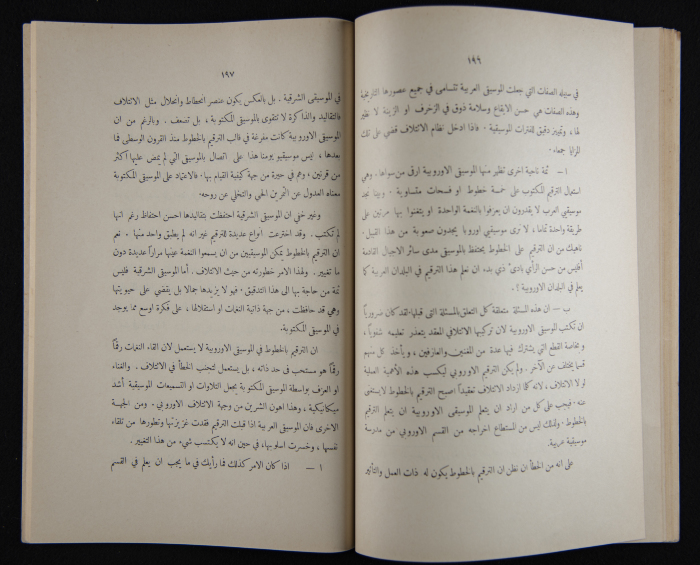 ١٩٦
في سبيله الصفات التي جعلت الموسيقى العربية تتسامى في جميع عصورها التاريخية
وهذه الصفات هي حسن الايقاع وسلامة ذوق في الزخرف او الزينة لا نظير
لها، وتمييز دقيق للفترات الموسيقية. فاذا ادخل نظام الائتلاف قضي على تلك
المزايا جمعاء.
١ — ثمة ناحية اخرى تظهر منها الموسيقى الاوروبية ارقى من سواها. وهي
استعمال الترقيم المكتوب على خمسة خطوط او فسحات متساوية. وبينا نجد
موسيقيي العرب لا يقدرون ان يعزفوا بالنغمة الواحدة او يتغنوا بها مرتين على
طريقة واحدة تماما، لا نرى موسيقيي اوروبا يجدون صعوبة من هذا القبيل.
ناهيك من ان الترقيم على الخطوط يحتفظ بالموسيقى مدى سائر الاجيال القادمة
أفليس من حسن الرأي بادئ ذي بدء ان نعلم هذا الترقيم في البلدان العربية كما
يعلم في البلدان الاوروبية؟.
ب — ان هذه المسئلة متعلقة كل التعلق بالمسئلة التي قبلها. لقد كان ضرورياً
ان تكتب الموسيقى الاوروبية لان تركيبها الائتلافي المعقد يتعذر تعليمه شفوياً،
وبخاصة القطع التي يشترك فيها عدة من المغنين والعازفين، ويأخذ كل منهم
قسما يختلف عن الآخر. ولم يكن الترقيم الاوروبي ليكسب هذه الأهمية العملية
لو لا الائتلاف، لانه كلما ازداد الائتلاف تعقيداً اصبح الترقيم بالخطوط لا يستغنى
عنه. فيجب على كل من اراد ان يتعلم الموسيقى الاوروبية ان يتعلم الترقيم
بالخطوط. ولذلك ليس من المستطاع اخراجه من القسم الاوروبي من مدرسة
موسيقية عربية.
على انه من الخطأ ان نظن ان الترقيم بالخطوط يكون له ذات العمل والتأثير
١٩٧
في الموسيقى الشرقية. بل بالعكس يكون عنصر انحطاط وانحلال مثل الائتلاف
فالتقاليد والذاكرة لا تتقوى بالموسيقى المكتوبة، بل تضعف. وبالرغم من ان
الموسيقى الاوروبية كانت مفرغة في قالب الترقيم بالخطوط منذ القرون الوسطى فما
بعدها، ليس موسيقيو يومنا هذا على اتصال بالموسيقى التي لم يمض عليها اكثر
من قرنين، وهم في حيرة من جهة كيفية القيام بها. فالاعتماد على الموسيقى المكتوبة
معناه العدول عن التمرين الحي والتخلي عن روحه.
وغير خفي ان الموسيقى الشرقية احتفظت بتقاليدها احسن احتفاظ رغم انها
لم تكتب. وقد اخترعت انواع عديدة للترقيم غير انه لم يطبق واحد منها. نعم
ان الترقيم بالخطوط يمكن الموسيقيين من ان يسمعوا النغمة عينها مراراً عديدة دون
ما تغيير. ولهذا الامر خطورته من حيث الائتلاف. أما الموسيقى الشرقية فليس
ثمة من حاجة بها الى هذا التدقيق. فهو لا يزيدها جمالا بل يقضي على حيويتها
وهي قد حافظت، من جهة ذاتية النغمات او استقلالها، على فكرة اوسع مما يوجد
في الموسيقى المكتوبة.
ان الترقيم بالخطوط في الموسيقى الاوروبية لا يستعمل لان القاء النغمات رقماً
رقماً هو مستحب في حد ذاته، بل يستعمل لتجنب الخطأ في الائتلاف. والغناء
او العزف بواسطة الموسيقى المكتوبة يجعل التلاوات او التسميعات الموسيقية أشد
ميكانيكية، وهذا اهون الشرين من وجهة الائتلاف الاوروبي. ومن الجهة
الاخرى فان الموسيقى العربية اذا قبلت الترقيم فقدت غريزيتها وتطورها من تلقاء
نفسها، وخسرت اسلوبها، في حين انه لا يكتسب شيء من هذا التغيير.
١ — اذا كان الامر كذلك فما رأيك في ما يجب ان يعلم في القسم